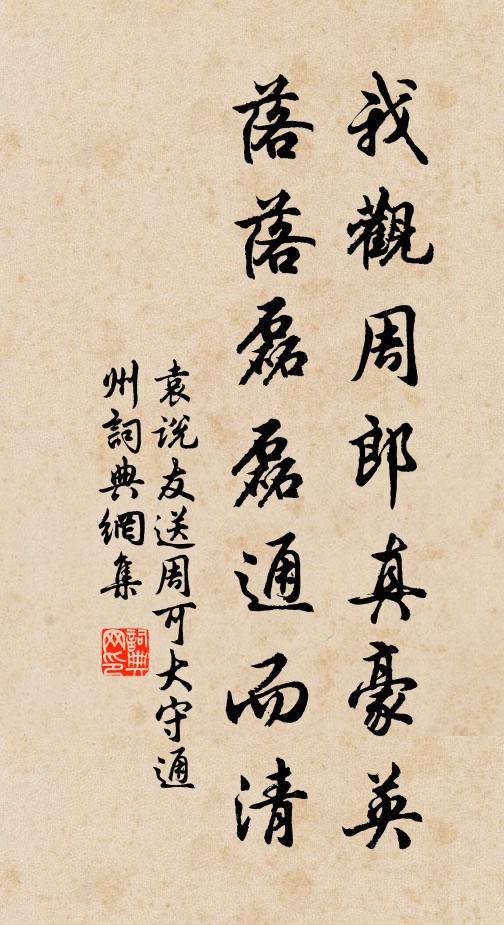 我觀周郎真豪英
落落磊磊通而清
袁说友送周可大守通
州詞典網集
詞典网印